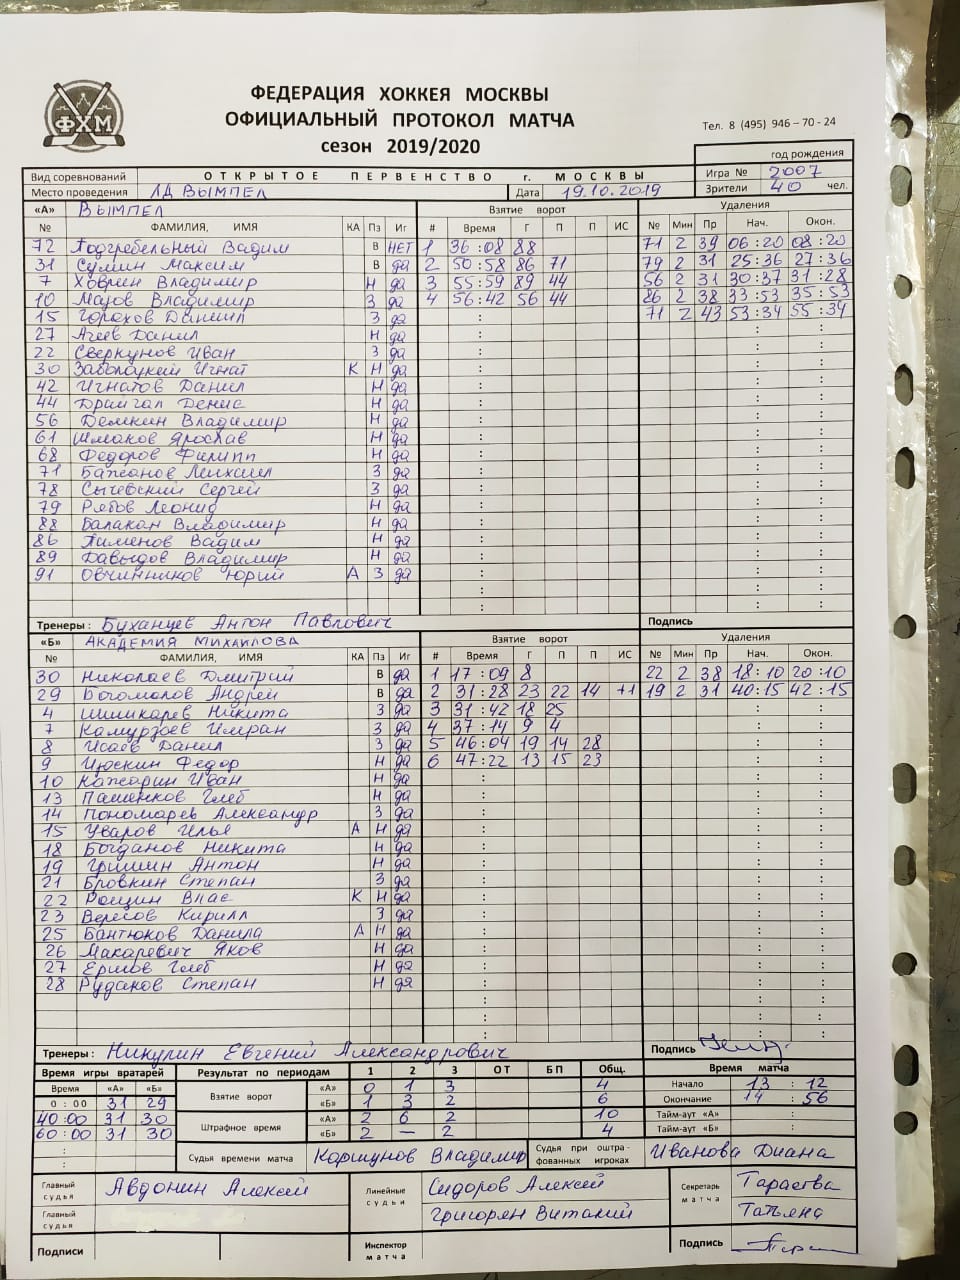 ФХМ
ФЕДЕРАЦИЯ ХОККЕЯ МОСКВЫ
ОФИЦИАЛЬНЫЙ ПРОТОКОЛ МАТЧА
сезон 2019/2020
Тел. 8 (495) 946 – 70 - 24
год рождения
Вид соревнований ОТКРЫТОЕ ПЕРВЕНСТВО г. МОСКВЫ Игра № 2007
Место проведения ЛД ВЫМПЕЛ Дата 19.10.2019 Зрители 40 чел.
«А» ВЫМПЕЛ Взятие ворот Удаления
№ ФАМИЛИЯ, ИМЯ КА Пз Иг # Время Г П П ИС № Мин Пр Нач. Окон.
72 Подгребельный Вадим В НЕТ 1 36:08 88 71 2 39 06:20 08:20
31 Сумин Максим В да 2 50:58 86 71 79 2 31 25:36 27:36
7 Ховрин Владимир Н да 3 55:59 89 44 56 2 31 30:37 31:28
10 Мазов Владимир З да 4 56:42 56 44 86 2 38 33:53 35:53
15 Горохов Даниил З да : 71 2 43 53:34 55:34
27 Агеев Данил Н да
22 Сверкунов Иван З да
30 Заболоцкий Игнат К Н да
42 Игнатов Данил Н да
44 Драйгал Денис Н да
56 Демкин Владимир Н да
61 Шмаков Ярослав Н да
68 Федоров Филипп Н да
71 Бажанов Михаил З да
78 Сычевский Сергей З да
79 Рябов Леонид Н да
88 Балакан Владимир Н да
86 Пименов Вадим Н да
89 Давыдов Владимир Н да
91 Овчинников Юрий А З да
Тренеры: Буханцев Антон Павлович Подпись
«Б» АКАДЕМИЯ МИХАЙЛОВА Взятие ворот Удаления
№ ФАМИЛИЯ, ИМЯ КА Пз Иг # Время Г П П ИС № Мин Пр Нач. Окон.
30 Николаев Дмитрий В да 1 17:09 8 22 2 38 18:10 20:10
29 Богомолов Андрей В да 2 31:28 23 22 14 +1 19 2 31 40:15 42:15
4 Шишкарев Никита З да 3 31:42 18 25
7 Камурзоев Имран З да 4 37:14 9 4
8 Исаев Данил З да 5 46:04 19 14 28
9 Цюскин Федор Н да 6 47:22 13 15 23
10 Кажарин Иван Н да
13 Пашенков Глеб Н да
14 Пономарев Александр З да
15 Уваров Илья А Н да
18 Богданов Никита Н да
19 Гришин Антон Н да
21 Бровкин Степан З да
22 Рощин Влас К Н да
23 Вересов Кирилл З да
25 Бантюков Данила А Н да
26 Макаревич Яков Н да
27 Ермов Глеб Н да
28 Рудаков Степан Н да
Тренеры: Никулин Евгений Александрович Подпись
Время игры вратарей Результат по периодам 1 2 3 ОТ БП Общ. Время матча
Время «А» «Б» Взятие ворот «А» 0 1 3 4 Начало 13 : 12
0 : 00 31 29 «Б» 1 3 2 6 Окончание 14 : 56
40:00 31 30 Штрафное время «А» 2 6 2 10 Тайм-аут «А» :
60:00 31 30 «Б» 2 – 2 4 Тайм-аут «Б» :
Судья времени матча Коршунов Владимир Судья при оштра-фованных игроках Иванова Диана
Главный судья Авдонин Алексей Линейные судьи Сидоров Алексей Секретарь матча Тараева
Главный судья Григорян Виталий Татьяна
Подписи Инспектор матча Подпись